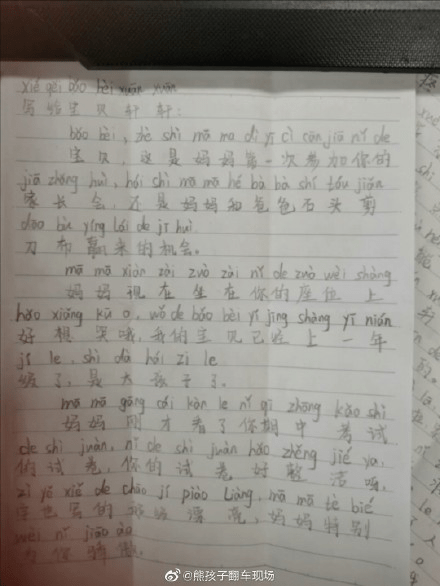 xiě gěi bǎo bèi xuān xuān
写给宝贝轩轩:
bǎo bèi, zhè shì mā ma dì yī cì cān jiā nǐ de
宝贝,这是妈妈第一次参加你的
jiā zhǎng huì, hái shì mā mā hé bà bà shí tóu jiǎn
家长会,还是妈妈和爸爸石头剪
dāo bù yíng lái de jī huì
刀布赢来的机会。
mā mā xiàn zài zuò zài nǐ de zuò wèi shàng
妈妈现在坐在你的座位上
hǎo xiǎng kū o, wǒ de bǎo bèi yǐ jīng shàng yī nián
好想哭哦,我的宝贝已经上一年
jí le, shì dà hái zi le
级了,是大孩子了。
mā mā gāng cái kàn le nǐ qī zhōng kǎo shì
妈妈刚才看了你期中考试
de shì juàn, nǐ de shì juàn hǎo zhěng jié ya,
的试卷,你的试卷好整洁呀,
zì yě xiě de chāo jí piào liàng, mā mā tè bié
字也写的超级漂亮,妈妈特别
wèi nǐ jiāo ào
为你骄傲。
@熊孩子翻车现场